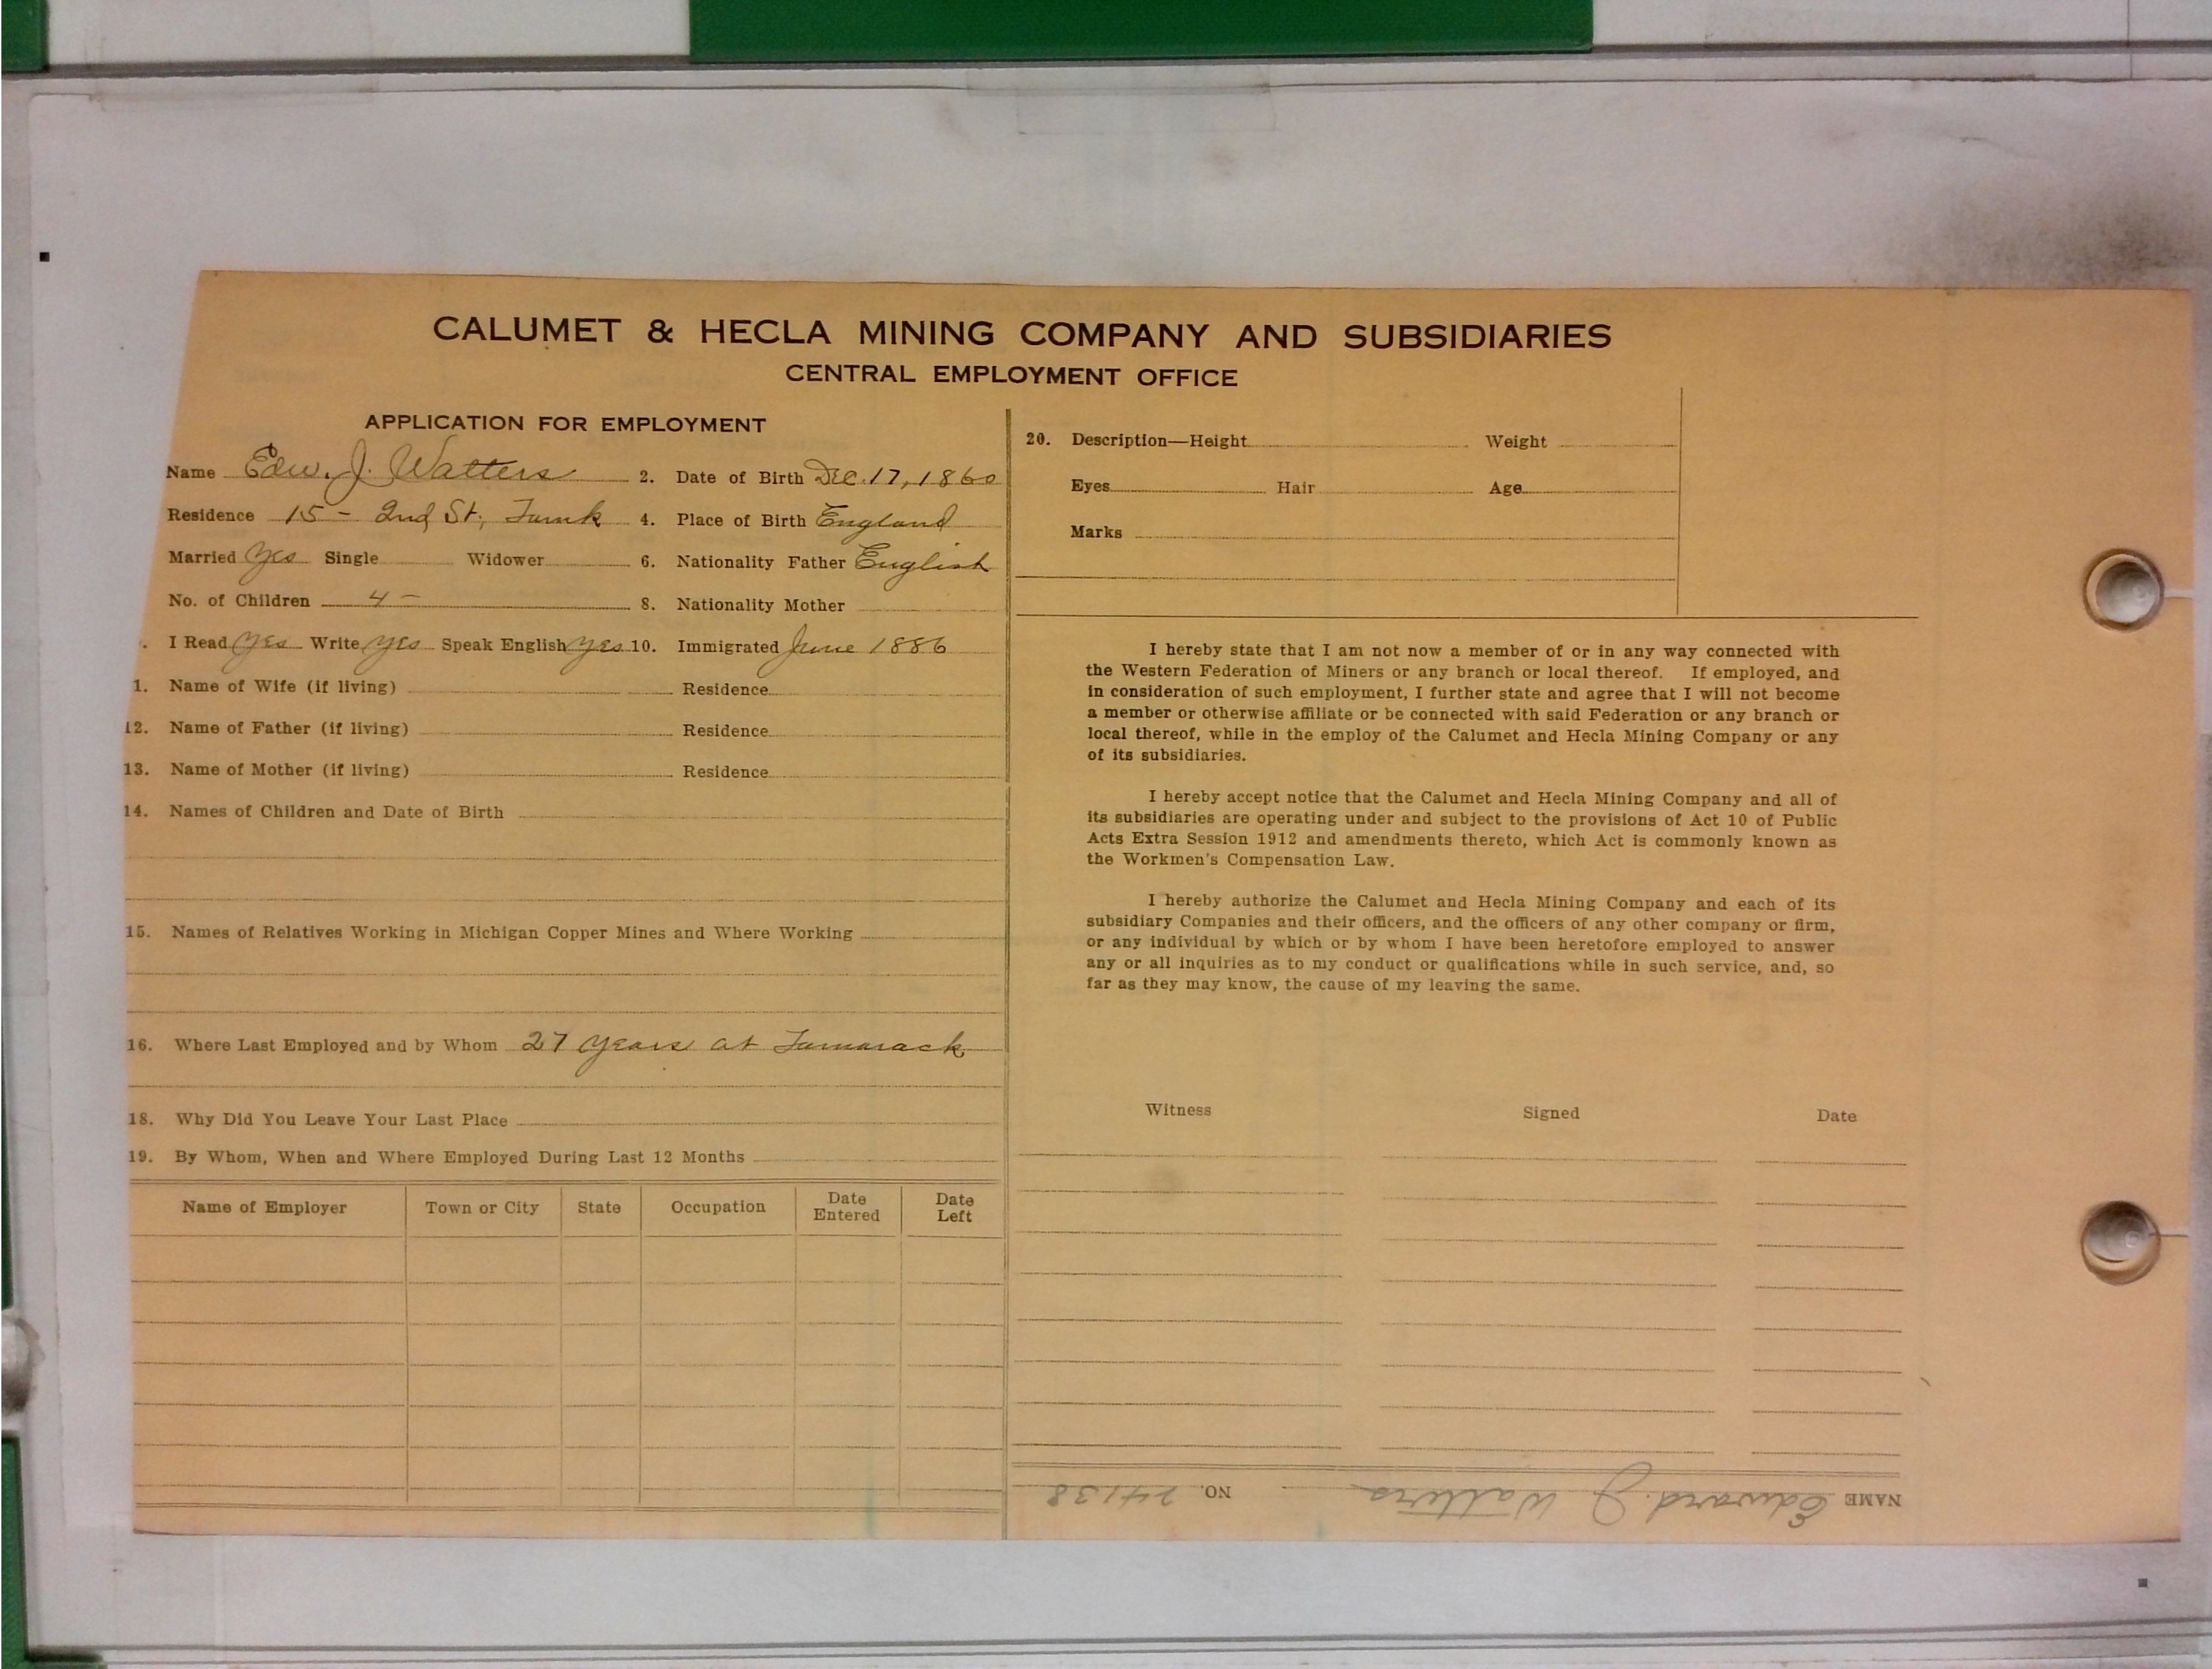 CALUMET & HECLA MINING COMPANY AND SUBSIDIARIES
CENTRAL EMPLOYMENT OFFICE
APPLICATION FOR EMPLOYMENT
Name Edw. J. Watters 2. Date of Birth Dec. 17, 1860
Residence 15 - 2nd St, Tamk 4. Place of Birth England
Married Yes Single Widower 6. Nationality Father English
No. of Children 4 - 8. Nationality Mother
. I Read Yes Write Yes Speak English Yes 10. Immigrated June 1886
1. Name of Wife (if living) Residence
12. Name of Father (if living) Residence
13. Name of Mother (if living) Residence
14. Names of Children and Date of Birth
15. Names of Relatives Working in Michigan Copper Mines and Where Working
16. Where Last Employed and by Whom 27 years at Tamarack
18. Why Did You Leave Your Last Place
19. By Whom, When and Where Employed During Last 12 Months
Name of Employer Town or City State Occupation Date Entered Date Left
20. Description—Height Weight
Eyes Hair Age
Marks
I hereby state that I am not now a member of or in any way connected with
the Western Federation of Miners or any branch or local thereof. If employed, and
in consideration of such employment, I further state and agree that I will not become
a member or otherwise affiliate or be connected with said Federation or any branch or
local thereof, while in the employ of the Calumet and Hecla Mining Company or any
of its subsidiaries.
I hereby accept notice that the Calumet and Hecla Mining Company and all of
its subsidiaries are operating under and subject to the provisions of Act 10 of Public
Acts Extra Session 1912 and amendments thereto, which Act is commonly known as
the Workmen's Compensation Law.
I hereby authorize the Calumet and Hecla Mining Company and each of its
subsidiary Companies and their officers, and the officers of any other company or firm,
or any individual by which or by whom I have been heretofore employed to answer
any or all inquiries as to my conduct or qualifications while in such service, and, so
far as they may know, the cause of my leaving the same.
Witness Signed Date
NAME Edward J Watters NO. 24138